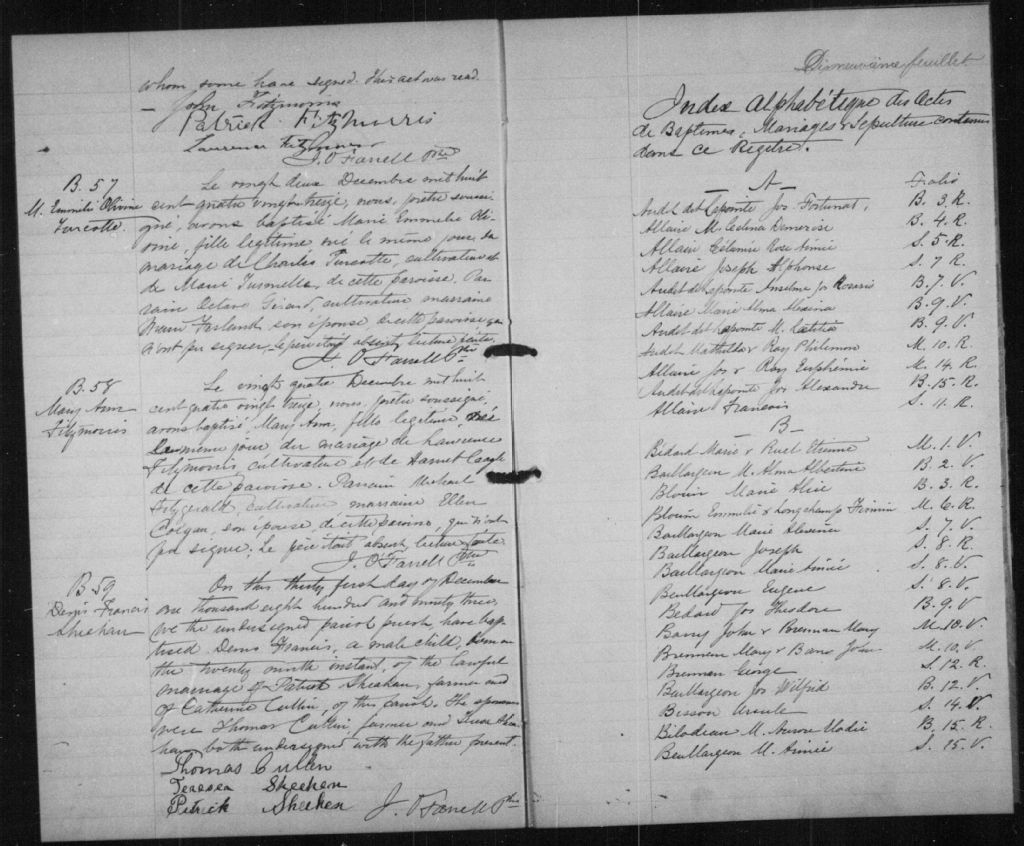 whom some have signed. This act was read.
John Fitzmorris
Patrick FitzMorris
Lawrence Fitzmorris
J. O'Farrell Ptre
B. 57
M. Emmelie Olivine
Turcotte.
Le vingt deux Decembre mil huit
cent quatre vingt treize, nous, prêtre soussi-
gné, avons baptisé Marie Emmelie Oli-
vine, fille legitime né le même jour, du
mariage de Charles Turcotte, cultivateur et
de Marie de cette paroisse. Par-
rain Octave Girard, cultivateur marraine
Ferland, son épouse, de cette paroisse qui
n'ont pu signer, le père étant absent, lecture faite.
J. O'Farrell Ptre
B. 58
Mary Ann
Fitzmorris
Le vingt quatre Decembre mil huit
cent quatre vingt treize, nous, prêtre soussigné,
avons baptisé, Mary Ann, fille legitime, née
le même jour du mariage de Lawrence
Fitzmorris, cultivateur et de Harriet
de cette paroisse. Parrain Michael
Fitzgerald, cultivateur marraine Ellen
Colgan, son épouse, de cette paroisse, qui n'ont
pu signer. Le père étant absent, lecture faite
J. O'Farrell Ptre
B 59
Denis Francis
Sheehan
On this thirty first day of December
one thousand eight hundred and ninty three,
we the undersigned parish priest, have bap-
tised Denis Francis, a male child, born on
the twenty ninth instant, of the lawful
marriage of Patrick Sheehan, farmer and
of Catherine Cullin, of this parish. The sponsors
were Thomas Cullin, farmer and
have both undersigned with the father present.
Thomas Cullen
Teresea Sheehen
Patrick Sheehen
J. O'Farrell Ptre
Dixneuvième feuillet
Index Alphabétique des Actes
de Baptêmes, Mariages & Sepulture contenus
dans ce Régitre.
A Folio
Audet dit Lapointe Jos. Fortunat, B. 3. R.
Allaire M. Celina Demerise B. 4. R.
Allaire Célanise Rose Aimée S. 5. R.
Allaire Joseph Alphonse S. 7 R.
Audet dit Lapointe Anselme Jos Rosario B. 7. V.
Allaire Marie Alma Alexina B. 9. V.
Audet dit Lapointe M. Laetitia B. 9. V.
Audet Mathilda & Roy Philemon M. 10. R.
Allaire Jos & Roy Euphémie M. 14. R.
Audet dit Lapointe Jos Alexandre B. 15. R.
Allaire Francois S. 11. R.
B
Bédard Marie & Ruel Etienne M. 1. V.
Baillargeon M. Alma Albertine B. 2. V.
Blouin Marie Alice B. 3. R.
Blouin Emmelie & Longchamp Firmin M. 6. R.
Baillargeon Marie Alexina S. 7. V.
Baillargeon Joseph S. 8. R.
Baillargeon Marie Aimée S. 8. V.
Beullargeon Eugene S. 8. V.
Bedard Jos Theodore B. 9. V
Barry John & Brennan Mary M. 10. V.
Brennen Mary & Barry John M. 10. V.
Brennan George S. 12. R.
Beullargeon Jos Wilfrid B. 12. V.
Bisson Ursule S. 14. V
Bilodeau M. Aurore Modie B. 15. R.
Beullargeon M. Aimée S. 15. V.